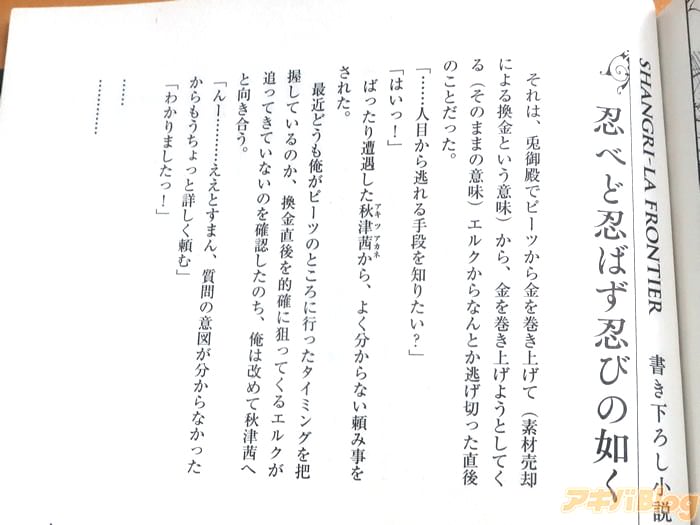 SHANGRI-LA FRONTIER 書き下ろし小説
忍べど忍ばず忍びの如く
それは、兎御殿でビーツから金を巻き上げて（素材売却
による換金という意味）から、金を巻き上げようとしてく
る（そのままの意味）エルクからなんとか逃げ切った直後
のことだった。
「……人目から逃れる手段を知りたい？」
「はいっ！」
ばったり遭遇した秋津茜から、よく分からない頼み事を
アキツアカネ
された。
最近どうも俺がビーツのところに行ったタイミングを把
握しているのか、換金直後を的確に狙ってくるエルクが
追ってきていないのを確認したのち、俺は改めて秋津茜へ
と向き合う。
「んー………ええとすまん、質問の意図が分からなかった
からもうちょっと詳しく頼む」
「わかりましたっ！」
……
…………
アキバBlog